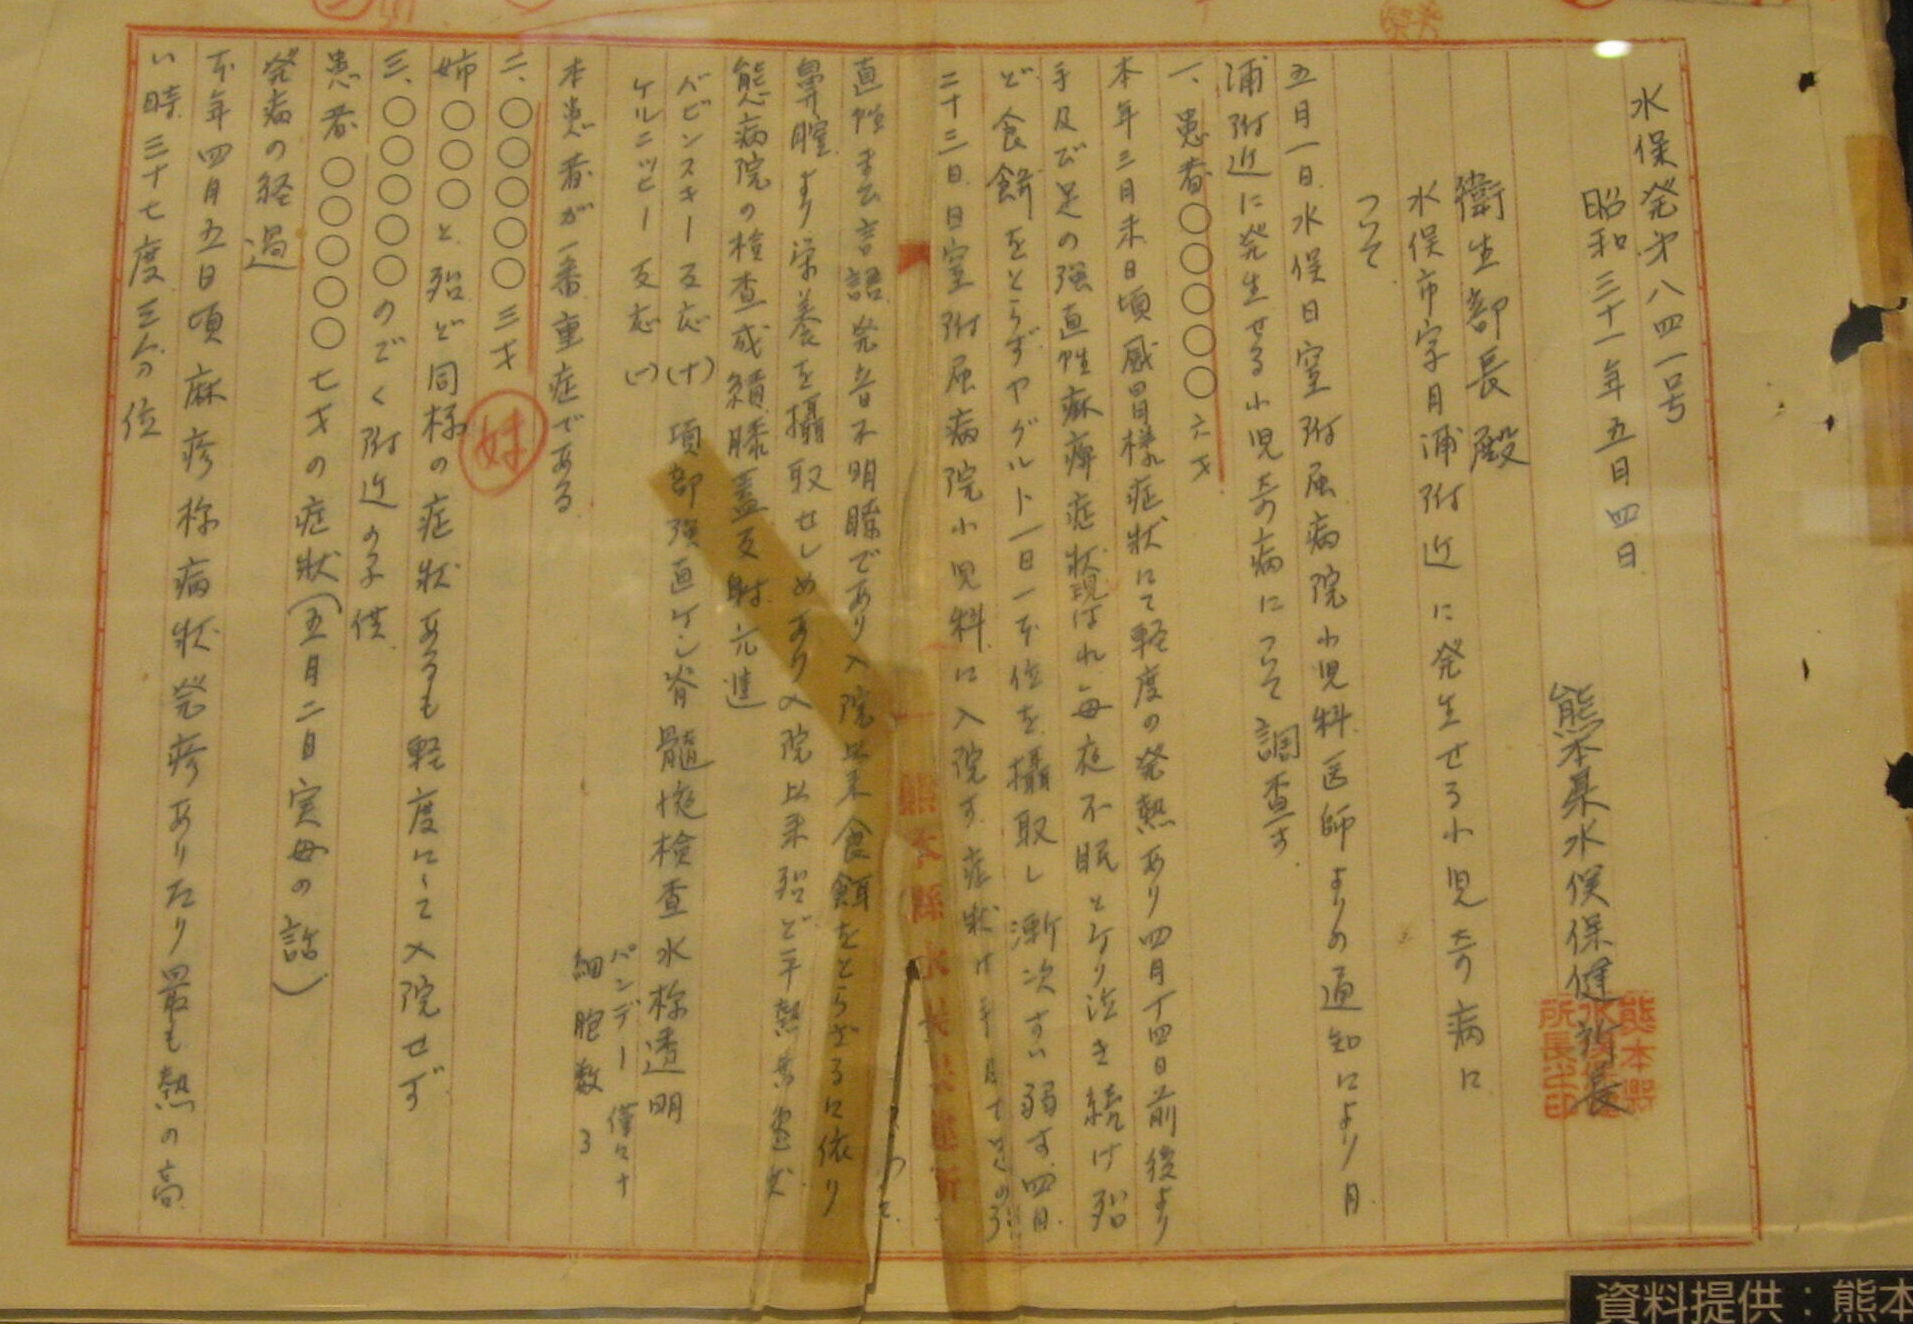 水保発才八四一号
昭和三十一年五月四日
熊本県水俣保健所長
衛生部長殿
水俣市字月浦附近に発生せる小児奇病に
ついて
五月一日水俣日窒附属病院小児科医師よりの通知により月
浦附近に発生せる小児奇病について調査す.
一、患者〇〇〇〇〇六才
本年三月末日頃感冒様症状にて軽度の発熱あり四月十四日前後より
手及び足の強直性麻痺症状現はれ毎夜不眠となり泣き続け殆
ど食餌をとらずヤグルト一日一本位を攝取し漸次すい弱す.四月
二十三日.日窒附属病院小児科に入院す.症状は手足
直性まひ言語発音不明瞭であり入院以来食餌をとらざるに依り
鼻腔より栄養を攝取せしめあり入院以来殆ど平熱
態病院の検査成績膝蓋反射亢進
バビンスキー反応(+)項部強直ケン脊髄液検査水様透明
パンデー僅々+
ケルニッヒー反応(-)
細胞数 3
本患者が一番重症である
二、〇〇〇〇〇三才 妹
姉〇〇〇と殆ど同様の症状あるも軽度にして入院せず
三、〇〇〇〇〇のごく附近の子供
患者〇〇〇〇〇七才の症状(五月二日実母の話)
発病の経過
本年四月五日頃麻疹様病状発疹ありたり最も熱の高
い時三十七度三分位
熊本縣水俣保健所
熊本縣水俣保健所長之印
資料提供：熊本